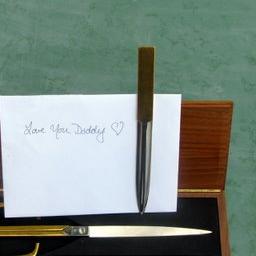 Love You Daddy ♡